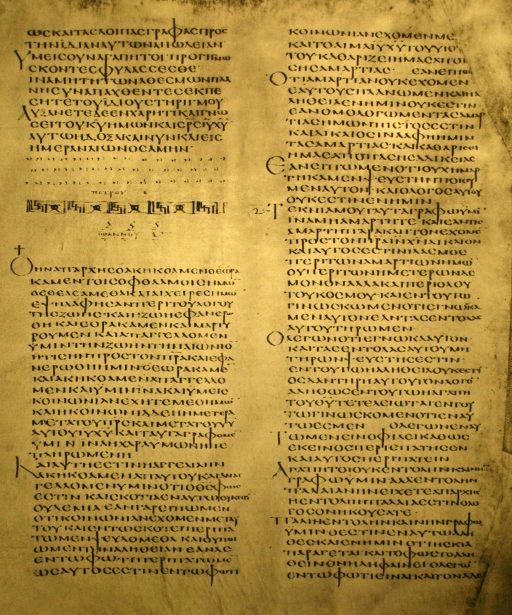 ωσκαιταςλοιπασγραφασπρος
τηνιδιαναυτωναπωλειαν
Υμεισουναγαπητοιπρογινω
σκοντεσφυλασσεσθε
ιναμητητωναθεσμωνπλα
νησυναπαχθεντεσεκπε
σητετουιδιουστηριγμου
Αυξανετεδεενχαριτικαιγνω
σειτουκυημωνκαισρσιυχυ
αυτωηδοξακαινυνκαιεισ
ημεραναιωνοσαμην·
πετρου β
ιωαννου
Οηναπαρχησοακηκοαμενοεωρα
καμεντοισοφθαλμοισημω
οεθεασαμεθακαιαιχειρεσημω
εψηλαφησανπεριτουλογου
τησζωησκαιηζωηεφανερω
θηκαιεορακαμενκαιμαρτυ
ρουμενκαιαπαγγελλομεν
υμιντηνζωηντηναιωνιο
ητισηνπροστονπρακαιεφα
νερωθηημινοεωρακαμε
καιακηκοαμεναπαγγελλο
μενκαιυμινινακαιυμεισ
κοινωνιανεχητεμεθημω
καιηκοινωνιαδεηημετερα
μετατουπρσκαιμετατουυυ
αυτουιυχυκαιταυταγραφομε
υμινιναηχαραυμωνηπε
πληρωμενη
Καιαυτηεστινηαγγελιαην
ακηκοαμεναπαυτουκαιαναγ
γελλομενυμινοτιοθσφωσ
εστινκαισκοτιαεναυτωουκεστι
ουδεμιαεανγαρειπωμεν
οτικοινωνιανεχομενμεταυ
τουκαιεντωσκοτειπεριπα
τωμενψευδομεθακαιουποι
ωμεντηναληθειανεανδε
εντωφωτιπεριπατωμεν
ωσαυτοσεστινεντωφωτι
κοινωνιανεχομενμε
καιτοαιμαιυχυτουυιου
τουκαθαριζειημασαπο
σησαμαρτιασ εανειπω
Οτιαμαρτιανουκεχομεν
εαυτουσπλανωμενκαιη
αληθειαενημινουκεστιν
εανομολογωμεντασαμαρ
τιασημωνπιστοσεστιν
καιδικαιοσινααφηημιν
τασαμαρτιασκαικαθαριση
ημασαποπασησαδικειασ
Εανειπωμενοτιουχημαρ
τηκαμενψευστηνποιου
μεναυτονκαιολογοσαυτου
ουκεστινενημιν
Τεκνιαμουταυταγραφωυμι
ιναμηαμαρτητεκαιεαντισ
αμαρτηπαρακλητονεχομε
προστονπραινχνδικαιον
καιαυτοσεστινιλασμοσ
περιτωναμαρτιωνημω
ουπεριτωνημετερωνδε
μονοναλλακαιπεριολου
τουκοσμουκαιεντουτω
γινωσκομενοτιεγνωκα
μεναυτονεαντασεντολασ
αυτουτηρωμεν
Ολεγωνοτιεγνωκααυτον
καιτασεντολασαυτουμη
τηρωνψευστησεστιν
εντουτωηαληθειαουκεστι
οσδαντηρηαυτουτονλογο
αληθωσεντουτωηαγαπη
τουθυτετελειωταιεντου
τωγινωσκομενοτιεναυ
τωεσμεν ολεγωνεναυ
Τωμενεινοφιλεικαθωσ
εκεινοσπεριεπατησεν
καιαυτοσπεριπατειν
Αγαπητοιουκεντοληνκαινην
γραφωυμιναλλεντολην
παλαιανηνειχετεαπαρχησ
ηεντοληηπαλαιαεστινολο
γοσονηκουσατε·
Παλινεντοληνκαινηνγραφω
υμινοεστινεναυτωαλη
θεσκαιενημινοτιησκια
παραγεταικαιτοφωστοαλη
θινονηδηφαινειολεγων
εντωφωτιειναικαιτοναδελ